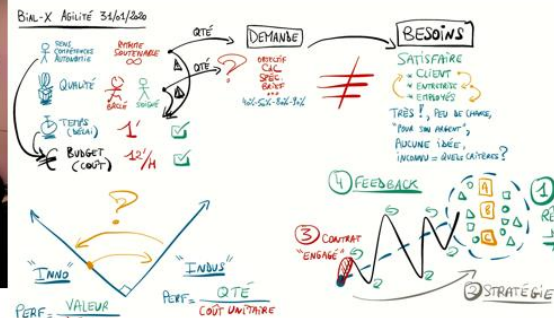 BIAL-X AGILITÉ 31/01/2020
SENS
COMPÉTENCES
AUTONOMIE
RYTHME
SOUTENABLE
QUALITÉ
BACLÉ
SOIGNÉ
TEMPS
(DÉLAI)
1'
BUDGET
(COÛT)
12'/H
QTÉ
QTÉ
?
DEMANDE
OBJECTIF
CDC
SPEC.
BRIEF
...
BESOINS
SATISFAIRE
* CLIENT
* ENTREPRISE
* EMPLOYÉS
TRÈS !, PEU DE CHANCE,
"POUR SON ARGENT",
AUCUNE IDÉE,
INCONNU = QUELS CRITÈRES ?
?
"INNO"
"INDUS"
PERF = VALEUR
PERF = QTÉ
COÛT UNITAIRE
4 FEEDBACK
3 CONTRAT
"ENGAGÉ"
A
B
C
1
2 STRATÉGIE